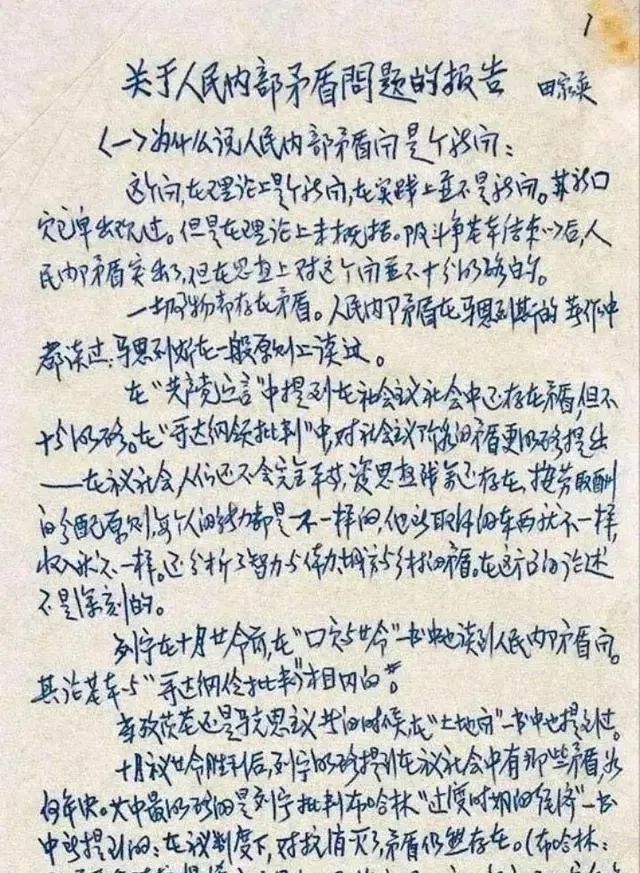 1
关于人民内部矛盾問题的报告 田家英
〈一〉为什么说人民内部矛盾问是个新问：
这个问,在理论上是个新问,在实践上並不是新问。
但是在理论上未概括。阶斗争基本结束以后,人
民内部矛盾突出了,但在思想上对这个问並不十分明确的。
一切事物都存在矛盾。人民内部矛盾在马恩列斯的著作中
都谈过;马恩列斯在一般原则上谈过。
在"共产党宣言"中提到在社会主义社会中还存在矛盾,但不
十分明确。在"哥达纲领批判"中,对社会主义的矛盾更明确提出
——在社会人们还不会完全平等,资思想残余还存在,按劳取酬
的分配原则,每个人的能力都是不一样的,他所取得的东西就不一样,
收入就不一样。还分析了智力与体力、城市与乡村的矛盾。在这方面的论述
不是深刻的。
列宁在十月革命前,在"国家与革命"一书中也谈到人民内部矛盾问。
其论基本与"哥达纲领批判"相同的。
普列汉诺夫还是马克思主义者的时候在"土地问"一书中也提到过。
十月革命胜利后,列宁明确提到在社会中有那些矛盾,
其中最明确的是列宁批判布哈林"过度时期的经济"一书
中所提到的:在制度下,对抗消灭了,矛盾仍然存在。(布哈林: